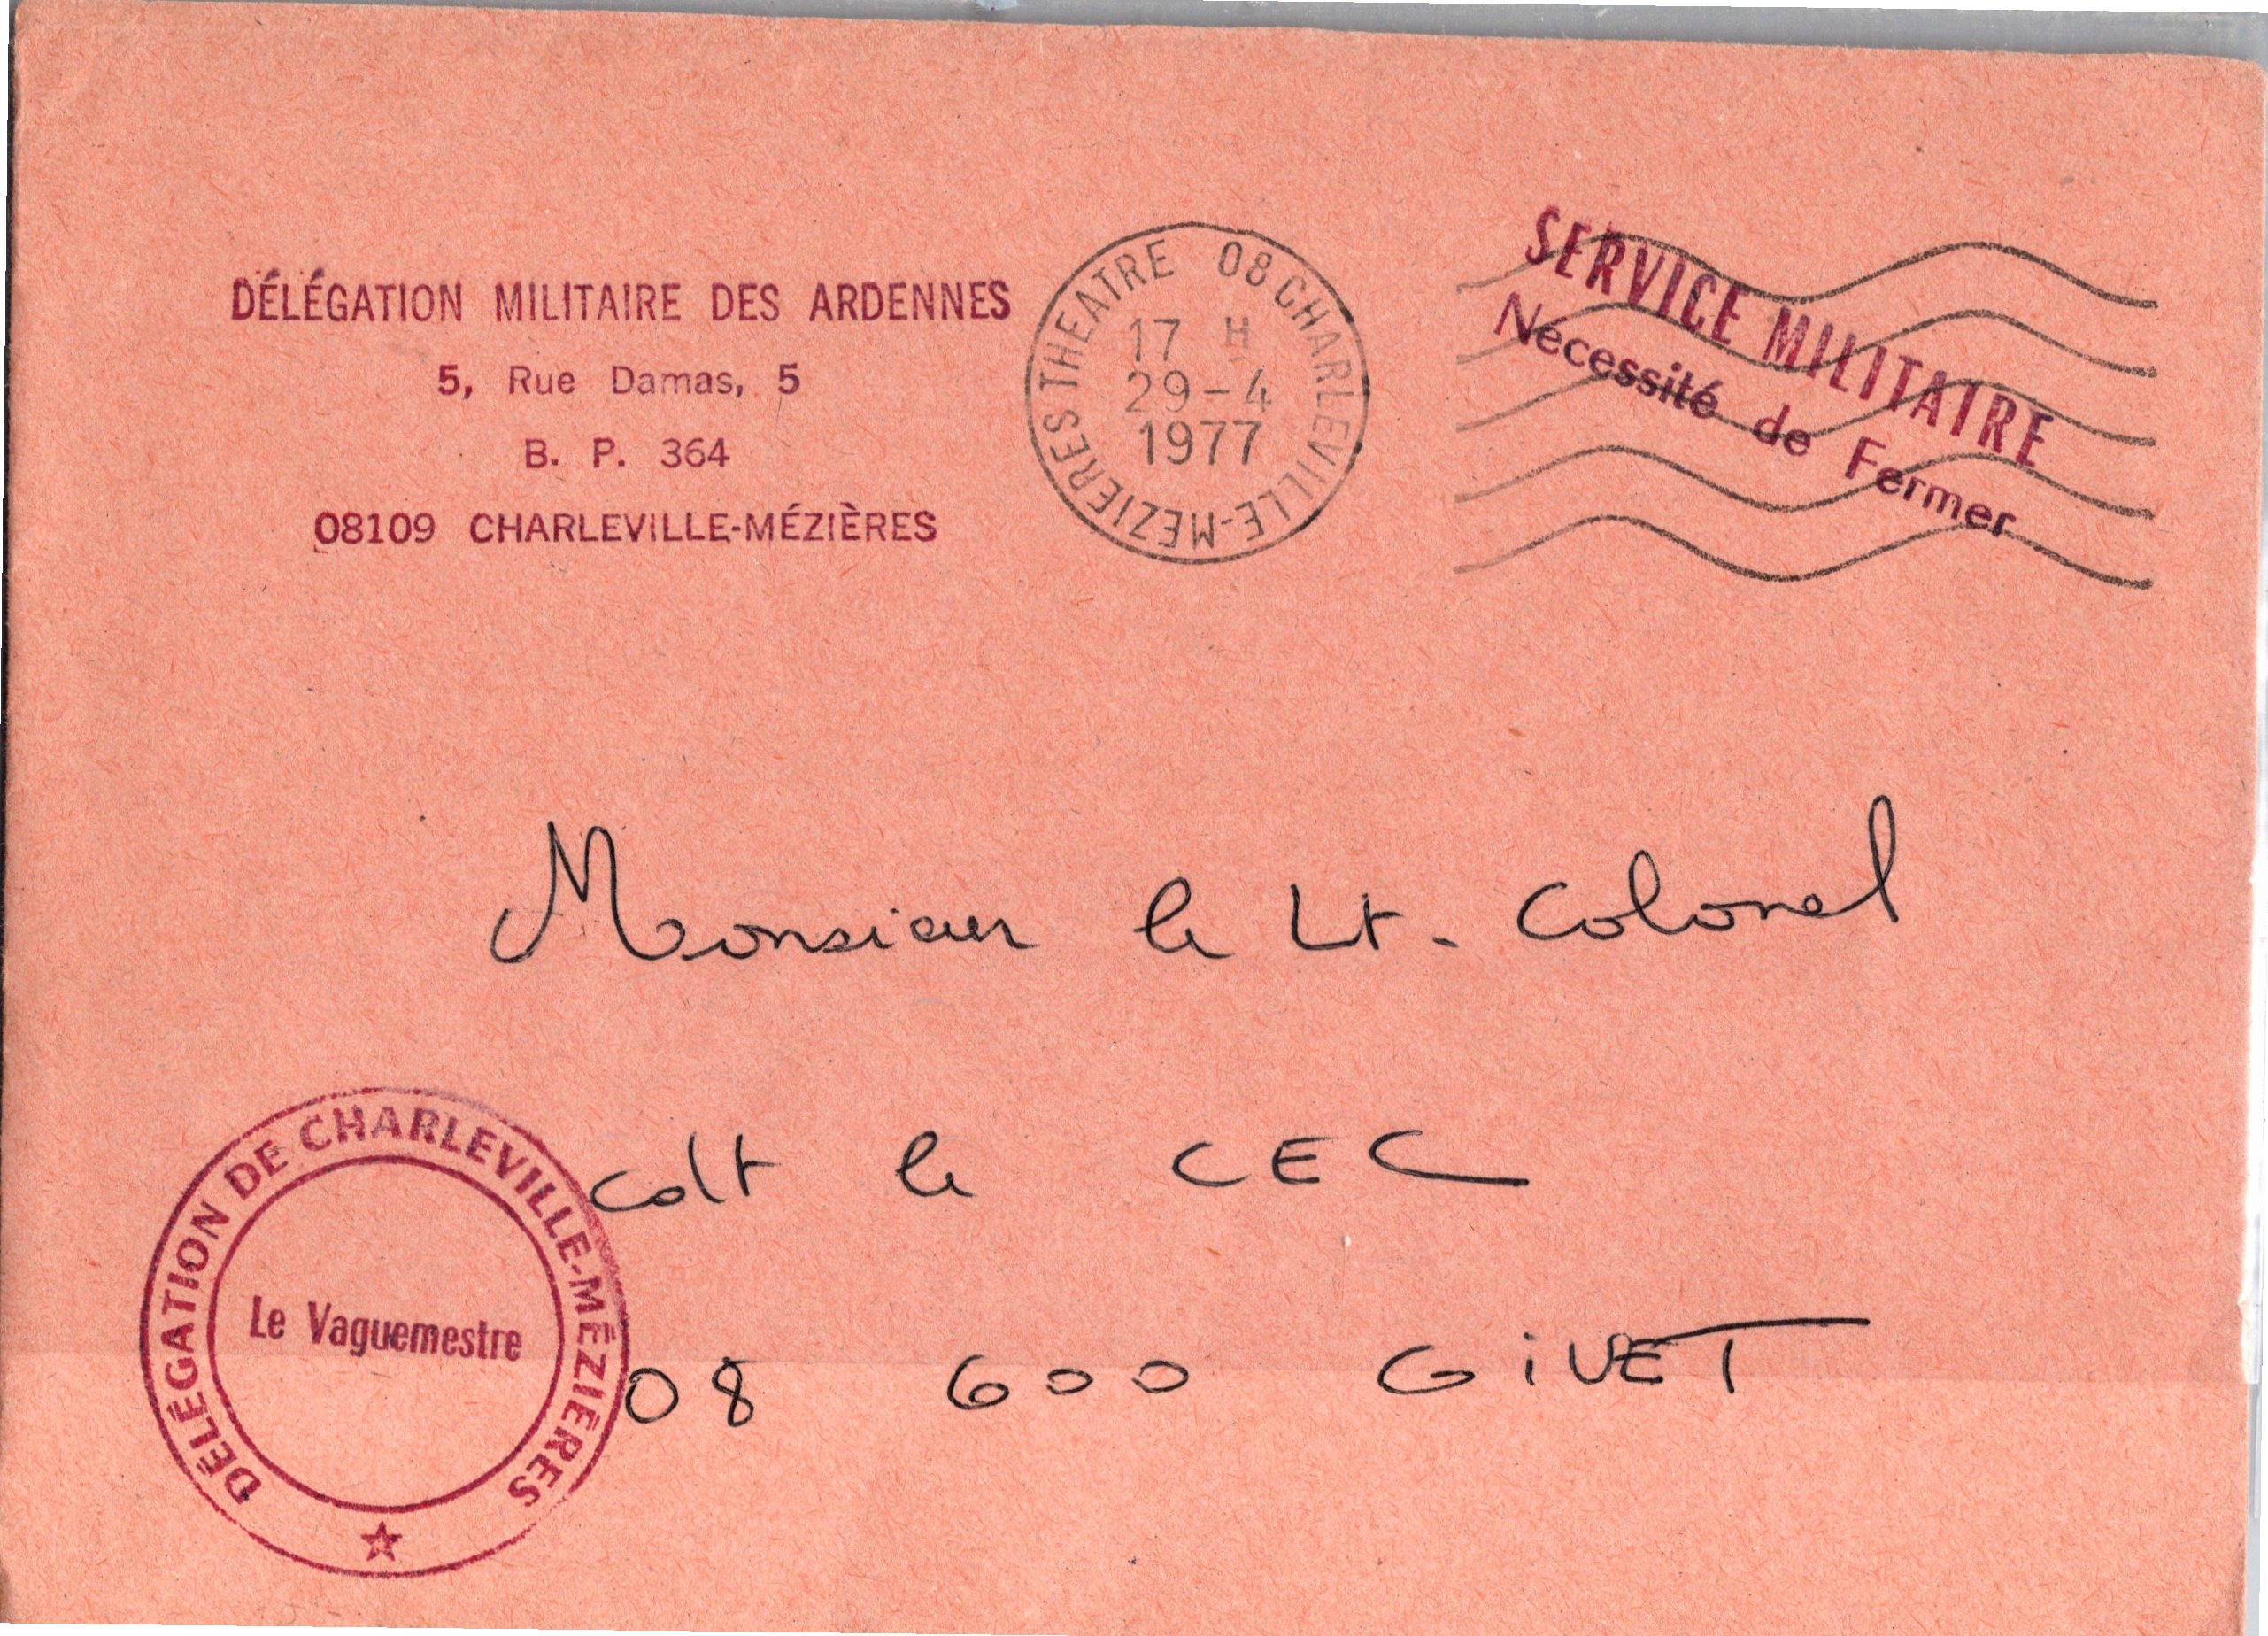 DÉLÉGATION MILITAIRE DES ARDENNES
5, Rue Damas, 5
B. P. 364
08109 CHARLEVILLE-MÉZIÈRES
08 CHARLEVILLE-MEZIERES THEATRE
17 H
29-4
1977
SERVICE MILITAIRE
Nécessité de Fermer
Monsieur le Lt. Colonel
Cdt le CEC
08 600 GIVET
DÉLÉGATION DE CHARLEVILLE-MÉZIÈRES
Le Vaguemestre